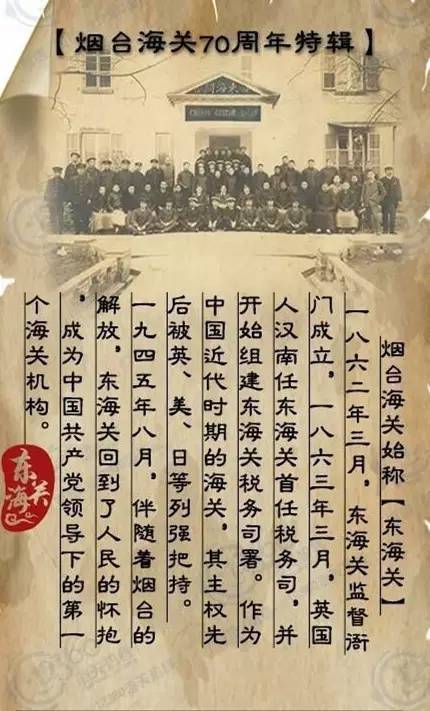 【烟台海关70周年特辑】
烟台海关始称【东海关】
一八六二年三月，东海关监督衙
门成立，一八六三年三月，英国
人汉南任东海关首任税务司，并
开始组建东海关税务司署。作为
中国近代时期的海关，其主权先
后被英、美、日等列强把持。
一九四五年八月，伴随着烟台的
解放，东海关回到了人民的怀抱
，成为中国共产党领导下的第一
个海关机构。
东海关